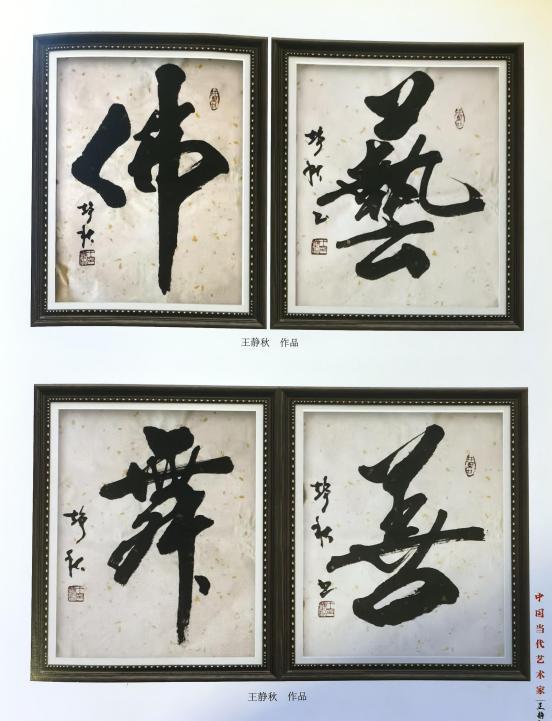 佛
静秋
藝
静秋书
王静秋 作品
舞
静秋
善
静秋书
王静秋 作品
中国当代艺术家
王静